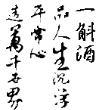 一斛酒
品人生沉浮
平常心
造萬千世界